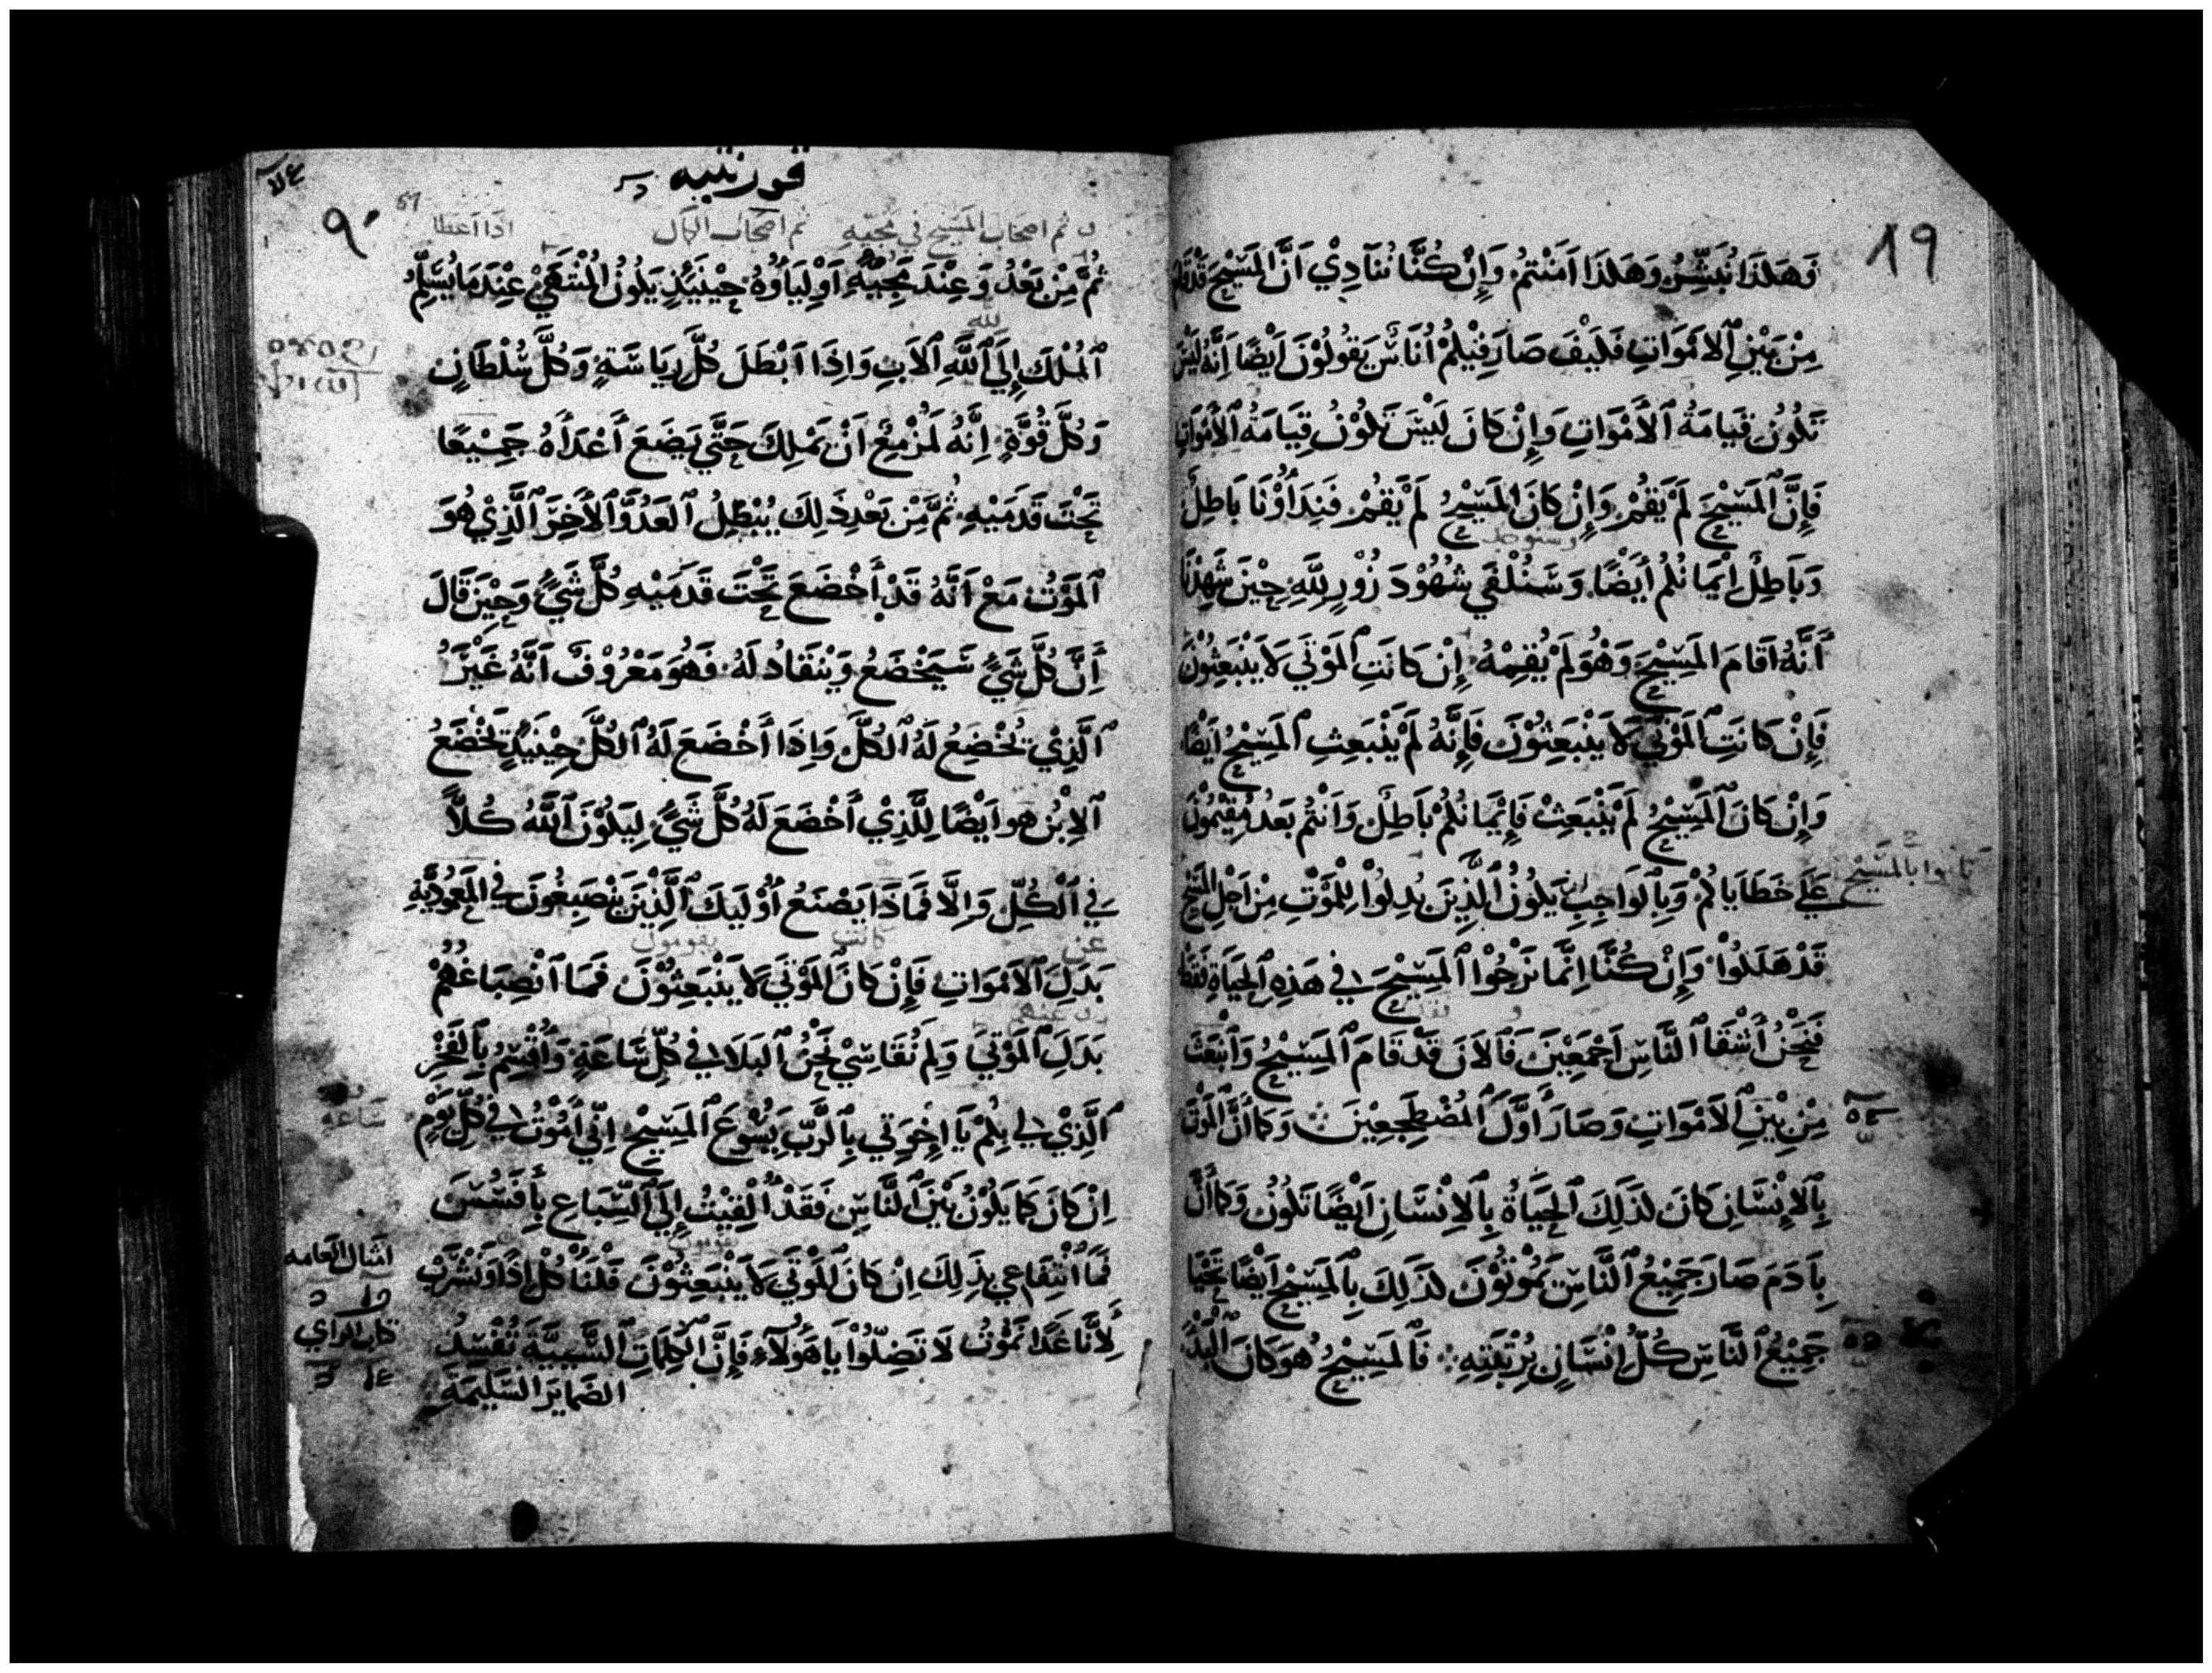 ١٩
فَهَكَذَا نُبَشِّرُ وَهَكَذَا اَمَنْتمُ وَإِنْ كُنَّا نُنَادِيْ اَنَّ المَسِيْحَ قَدْ قَامَ
مِنْ بَيْنِ ٱلاَمْوَاتِ فَكَيْفَ صَارَ فِيْكُمْ اُنَاسٌ يَقُولُوْنَ اَيْضًا اِنَّهُ لَيْسَ
تَكُونُ قِيَامَةُ ٱلأَمْوَاتِ وَإِنْ كَانَ لَيْسَ تَكُوْنُ قِيَامَةُ ٱلأَمْوَاتِ
فَإِنَّ ٱلمَسِيْحَ لَمْ يَقُمْ وَإِنْ كَانَ المَسِيْحُ لَمْ يَقُمْ فَنِدَاؤُنَا بَاطِلٌ
وَبَاطِلٌ اِيْمَانُكُمْ أَيْضًا وَسَنُلْفَي شُهُوْدَ زُوْرٍ لِلَّهِ حِيْنَ شَهِدْنَا
أَنَّهُ اَقَامَ المَسِيْحَ وَهُوَ لَمْ يُقِمْهُ إِنْ كَانَتِ ٱلمَوْتَي لاَ يَنْبَعِثُوْنَ
فَإِنْ كَانَتِ ٱلمَوْتَي لاَ يَنْبَعِثِوُنَ فَإِنَّهُ لَمْ يَنْبَعِثِ ٱلمَسِيْحُ اَيْضًا
وَإِنْ كَانَ ٱلمَسِيْحُ لَمْ يَنْبَعِثْ فَإِيْمَانُكُمْ بَاطِلٌ وَاَنْتُمْ بَعْدُ مُقِيْمُوْنَ
عَلَي خَطَايَاكُمْ وَبِالوَاجِبِ يَكُونُ ٱلَّذِيْنَ بُدِلُوْا لِلْمَوْتِ مِنْ اَجْلِ المَسِيْحِ
قَدْ هَلَكُوْا وَإِنْ كُنَّا اِنَّمَا نَرْجُوْا ٱلمَسِيْحَ فِي هَذِهِ ٱلحَيَاةِ فَقَطْ
فَنَحْنُ أَشْقَا ٱلنَّاسِ اَجْمَعِيْنَ فَالاَنَ قَدْ قَامَ ٱلمَسِيْحُ وَاَنْبَعَثَ
مِنْ بَيْنِ ٱلاَمْوَاتِ وَصَارَ أَوَّلَ ٱلمُضْطَجِعِيْنَ وَكَمَا أَنَّ ٱلمَوْتَ
بِالاِنْسَانِ كَانَ كَذَلِكَ ٱلحَيَاةُ بِالاِنْسَانِ اَيْضًا تَكُونُ وَكَمَا أَنَّ
بِاَدَمَ صَارَ جَمِيْعُ ٱلنَّاسِ يَمُوْتُوْنَ كَذَلِكَ بِالمَسِيْحِ اَيْضًا يَحْيَا
جَمِيْعُ ٱلنَّاسِ كُلُّ إِنْسَانٍ بِرُتْبَتِهِ فَالمَسِيْحُ هُوَ كَانَ ٱلبَدْءُ
قورنتيه
٩٠
57
ثم اصحاب المسيح في مجيّه ثم اصحاب الكمال اذا اعطا
ثُمَّ مِنْ بَعْدُ وَعِنْدَ مَجِيْئِهِ اَوْلِيَاؤُهُ حِيْنَيِذٍ يَكُونُ المُنْتَهَي عِنْدَمَا يُسَلِّمُ
ٱلمُلْكَ إِلَي ٱللَّهِ ٱلاَبِ وَاِذَا اَبْطَلَ كُلَّ رِيَاسَةٍ وَكُلَّ سُلْطَانٍ
وَكُلَّ قُوَّةٍ اِنَّهُ لَمُزْمِعٌ اَنْ يَمْلِكَ حَتَّي يَضَعَ أَعْدَاهُ جَمِيْعًا
تَحْتَ قَدَمَيْهِ ثُمَّ مِنْ بَعْدِ ذَلِكَ يُبْطِلُ ٱلعَدُوَّ ٱلأَخِرَ ٱلَّذِيْ هُوَ
ٱلمَوْتُ مَعْ اَنَّهُ قَدْ أَخْضَعَ تَحْتَ قَدَمَيْهِ كُلَّ شَيْءٍ وَحِيْنَ قَالَ
إِنَّ كُلَّ شَيْءٍ سَيَخْضَعُ وَيَنْقَادُ لَهُ فَهُوَ مَعْرُوْفٌ اَنَّهُ غَيْرُ
ٱلَّذِيْ يُخْضِعُ لَهُ ٱلكُلَّ وَاِذَا أَخْضَعَ لَهُ ٱلكُلَّ حِيْنَيِذٍ يَخْضَعُ
ٱلاِبْنُ هو اَيْضًا لِلَّذِيْ أَخْضَعَ لَهُ كُلَّ شَيْءٍ لِيَكُوْنَ ٱللَّهُ كُلاًّ
فِي ٱلْكُلِّ وَاِلَّا فَمَاذَا يَصْنَعُ أُوْلَيِكَ ٱلَّذِيْنَ يَنْصَبِغُونَ فِي المَعْمُودِيَّةِ
بَدَلَ ٱلاَمْوَاتِ فَإِنْ كَانَ المَوْتَي لاَ يَنْبَعِثِوُنَ فَمَا اَنْصِبَاغُهُمْ
بَدَلَ ٱلمَوْتَي وَلِمَ نُقَاسِيْ نَحْنُ ٱلبَلاَ فِي كُلِّ سَاعَةٍ وَأُقْسِمُ بِالفَخْرِ
ٱلَّذِيْ لِي بِكُمْ يَا إِخْوَتِي بِالرَّبِّ يَسُوْعَ ٱلمَسِيْحِ اِنِّي أَمُوْتُ فِي كُلِّ يَوْمٍ
اِنْ كَانَ كَمَا يَكُوْنُ بَيْنَ ٱلنَّاسِ فَقَدْ أُلْقِيْتُ إِلَي ٱلسِّبَاعِ بِأَفَسُسَ
فَمَا اَنْتِفَاعِي بِذَلِكَ اِنْ كَانَ المَوْتَي لاَ يَنْبَعِثِوُنَ فَلْنَأْكُلْ اِذًا وَنَشْرَبْ
لِأَنَّا غَدًا نَمُوْتُ لاَ تَضِلُّوْا يَا هَؤُلآءِ فَإِنَّ ٱلكَلِمَاتِ ٱلسَّيِيَّةَ تُفْسِدُ
الضَمايرَ السَّلِيمَةَ
عن كانت يقومون
ساعه
امثال العامه